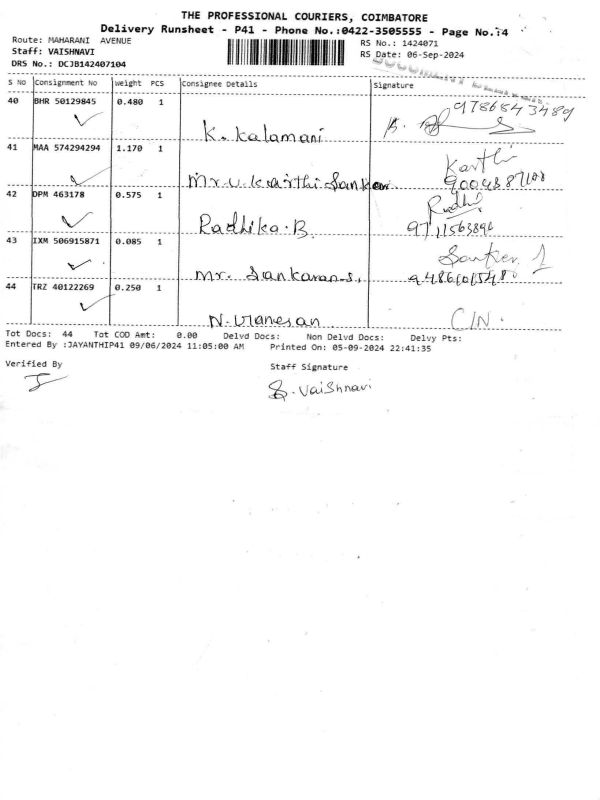 THE PROFESSIONAL COURIERS, COIMBATORE
Delivery Runsheet - P41 - Phone No.:0422-3505555 - Page No.:4
Route: MAHARANI AVENUE
Staff: VAISHNAVI
DRS No.: DCJB142407104
RS No.: 1424071
RS Date: 06-Sep-2024
S No Consignment No Weight PCS Consignee Details Signature
40 BHR 50129845 0.480 1
9786543489
K. Kalamani
41 MAA 574294294 1.170 1
Karthi
Mr. U. Karthi Sankar
42 DPM 463178 0.575 1
Radhi
Radhika. B.
43 IXM 506915871 0.085 1
Mr. Sankaran. S.
44 TRZ 40122269 0.250 1
N. C/N.
Tot Docs: 44 Tot COD Amt: 0.00 Delvd Docs: Non Delvd Docs: Delvy Pts:
Entered By :JAYANTHIP41 09/06/2024 11:05:00 AM Printed On: 05-09-2024 22:41:35
Verified By
Staff Signature
S. Vaishnavi